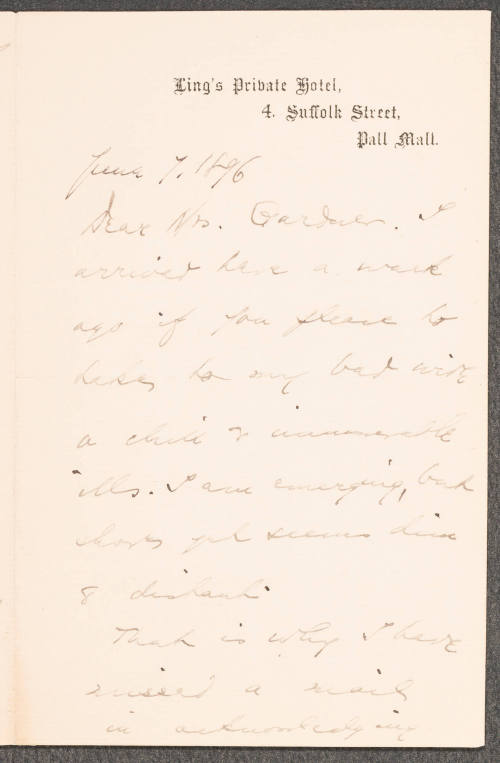 Ling's Private Hotel,
4. Suffolk Street,
Pall Mall.
June 7, 1896
Dear Mrs. Gardner. I
arrived here a week
ago & if you please to
take to my bed with
a chill & innumerable
ills. I am emerging, but
shores yet seems dim
& distant
That is why I have
missed a mail
in acknowledging